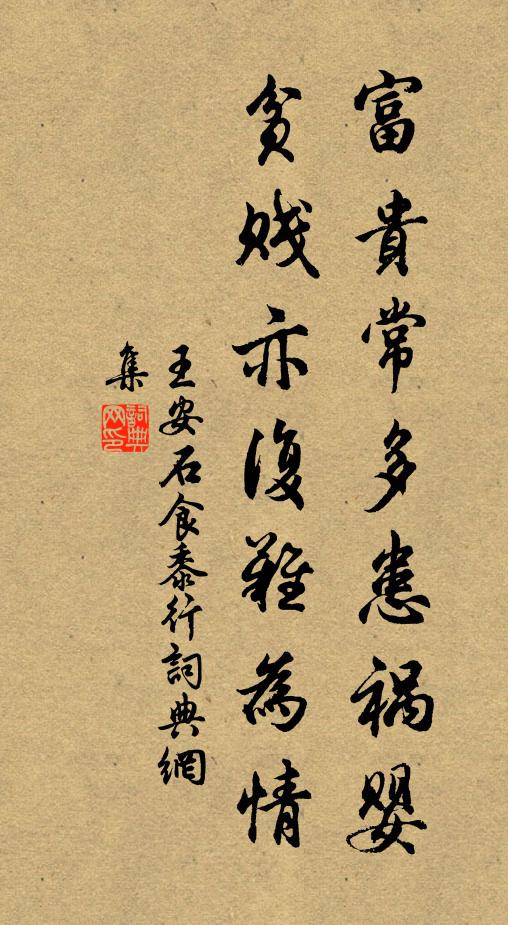 富貴常多患禍嬰
貧賤亦復難為情
王安石食黍行詞典網
集
詞典
网印